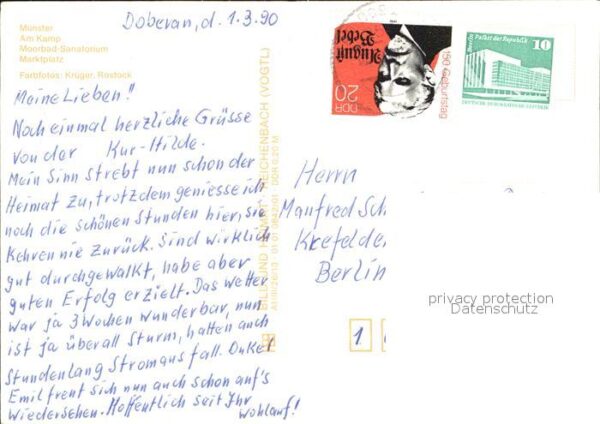 Münster
Am Kamp
Moorbad-Sanatorium
Marktplatz
Farbfotos: Krüger, Rostock
Doberan, d. 1.3.90
Meine Lieben!!
Noch einmal herzliche Grüsse
von der Kur-Hilde.
Mein Sinn strebt nun schon der
Heimat zu, trotzdem geniesse ich
noch die schönen Stunden hier, sie
kehren nie zurück. Sind wirklich
gut durchgewalkt, habe aber
guten Erfolg erzielt. Das Wetter
war ja 3 Wochen wunderbar, nun
ist ja überall Sturm, hatten auch
Stundenlang Stromausfall. Onkel
Emil freut sich nun auch schon auf's
Wiedersehen. Hoffentlich seit Ihr
wohlauf!
BILD UND HEIMAT REICHENBACH (VOGTL)
DDR 0,20 M
150. Geburtstag
August Bebel
DDR
20
Berlin, Palast der Republik
10
DEUTSCHE DEMOKRATISCHE REPUBLIK
Herrn
Manfred Sch
Krefelde
Berlin
1
privacy protection
Datenschutz